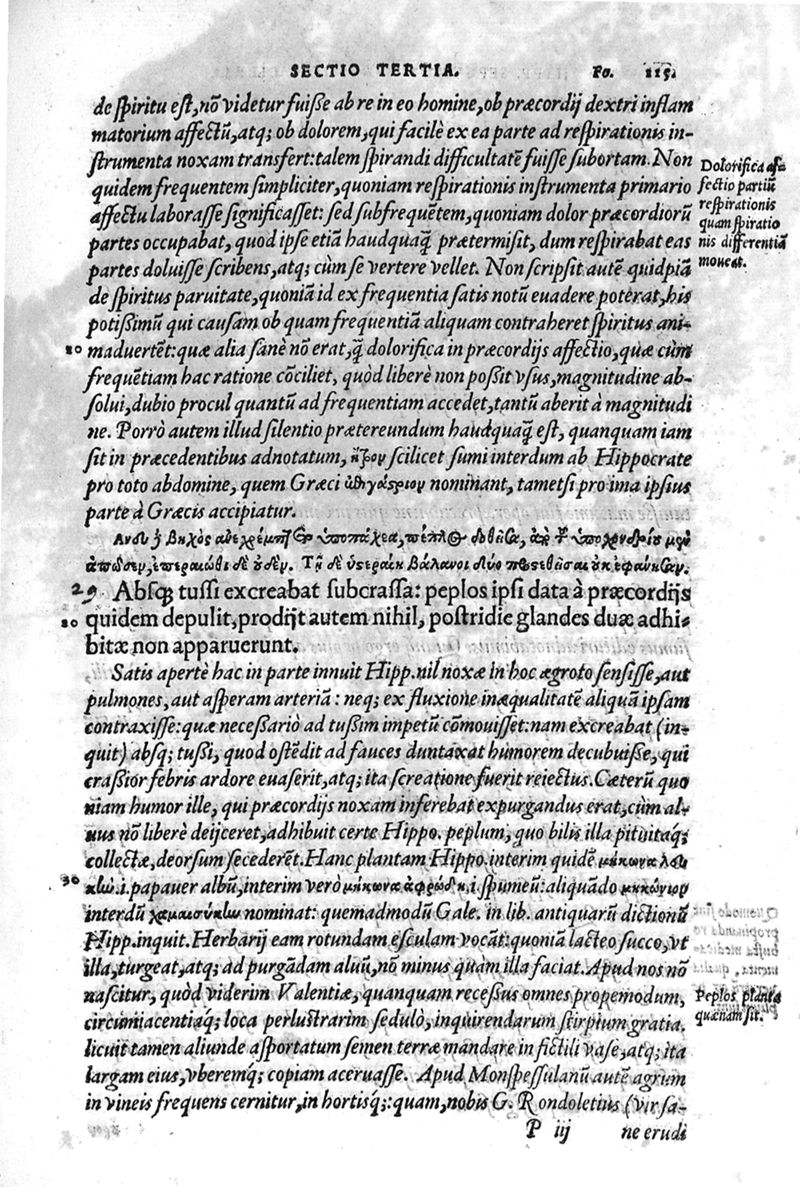 SECTIO TERTIA. Fo. 115.
de spiritu est, nō videtur fuisse ab re in eo homine, ob præcordij dextri inflam
matorium affectū, atq; ob dolorem, qui facilè ex ea parte ad respirationis in-
strumenta noxam transfert: talem spirandi difficultatē fuisse subortam. Non
quidem frequentem simpliciter, quoniam respirationis instrumenta primario
affectu laborasse significasset: sed subfrequētem, quoniam dolor præcordiorū
partes occupabat, quod ipse etiā haudquaq̃ prætermisit, dum respirabat eas
partes doluisse scribens, atq; cùm se vertere vellet. Non scripsit autē quidpiā
de spiritus paruitate, quoniā id ex frequentia satis notū euadere poterat, his
potissimū qui causam ob quam frequentiā aliquam contraheret spiritus ani-
maduertēt: quæ alia sanè nō erat, q̃ dolorifica in præcordijs affectio, quæ cùm
frequētiam hac ratione cōciliet, quòd liberè non possit vsus, magnitudine ab-
solui, dubio procul quantū ad frequentiam accedet, tantū aberit à magnitudi
ne. Porrò autem illud silentio prætereundum haudquaq̃ est, quanquam iam
sit in præcedentibus adnotatum, ἦτρον scilicet sumi interdum ab Hippocrate
pro toto abdomine, quem Græci nominant, tametsi pro ima ipsius
parte à Græcis accipiatur.
Dolorifica af-
fectio partiū
respirationis
quam spiratio
nis differentiā
moueat.
20
βηχὸς
29 Absq; tussi excreabat subcrassa: peplos ipsi data à præcordijs
quidem depulit, prodijt autem nihil, postridie glandes duæ adhi-
bitæ non apparuerunt.
Satis apertè hac in parte innuit Hipp. nil noxæ in hoc ægroto sensisse, aut
pulmones, aut asperam arteriā: neq; ex fluxione inæqualitatē aliquā ipsam
contraxisse: quæ necessariò ad tussim impetū cōmouisset: nam excreabat (in-
quit) absq; tussi, quod ostēdit ad fauces duntaxat humorem decubuisse, qui
crassior febris ardore euaserit, atq; ita screatione fuerit reiectus. Cæterū quo
niam humor ille, qui præcordijs noxam inferebat expurgandus erat, cùm al-
uus nō liberè deijceret, adhibuit certe Hippo. peplum, quo bilis illa pituitaq;
collectæ, deorsum secederēt. Hanc plantam Hippo. interim quidē μήκωνα λευ
κὴν .i. papauer albū, interim verò μήκωνα ἀφρώδη .i. spumeū: aliquādo μηκώνιον
interdū χαμαισύκην nominat: quemadmodū Gale. in lib. antiquarū dictionū
Hipp. inquit. Herbarij eam rotundam esculam vocāt: quoniā lacteo succo, vt
illa, turgeat, atq; ad purgādam aluū, nō minus quàm illa faciat. Apud nos nō
nascitur, quòd viderim Valentiæ, quanquam recessus omnes propemodum,
circumiacentiaq; loca perlustrarim sedulò, inquirendarum stirpium gratia.
licuit tamen aliunde asportatum semen terræ mandare in fictili vase, atq; ita
largam eius, vberemq; copiam aceruasse. Apud Monspessulanū autē agrum
in vineis frequens cernitur, in hortisq;: quam, nobis G. Rondoletius (vir sa-
30
Peplos planta
quænam sit.
P iij ne erudi